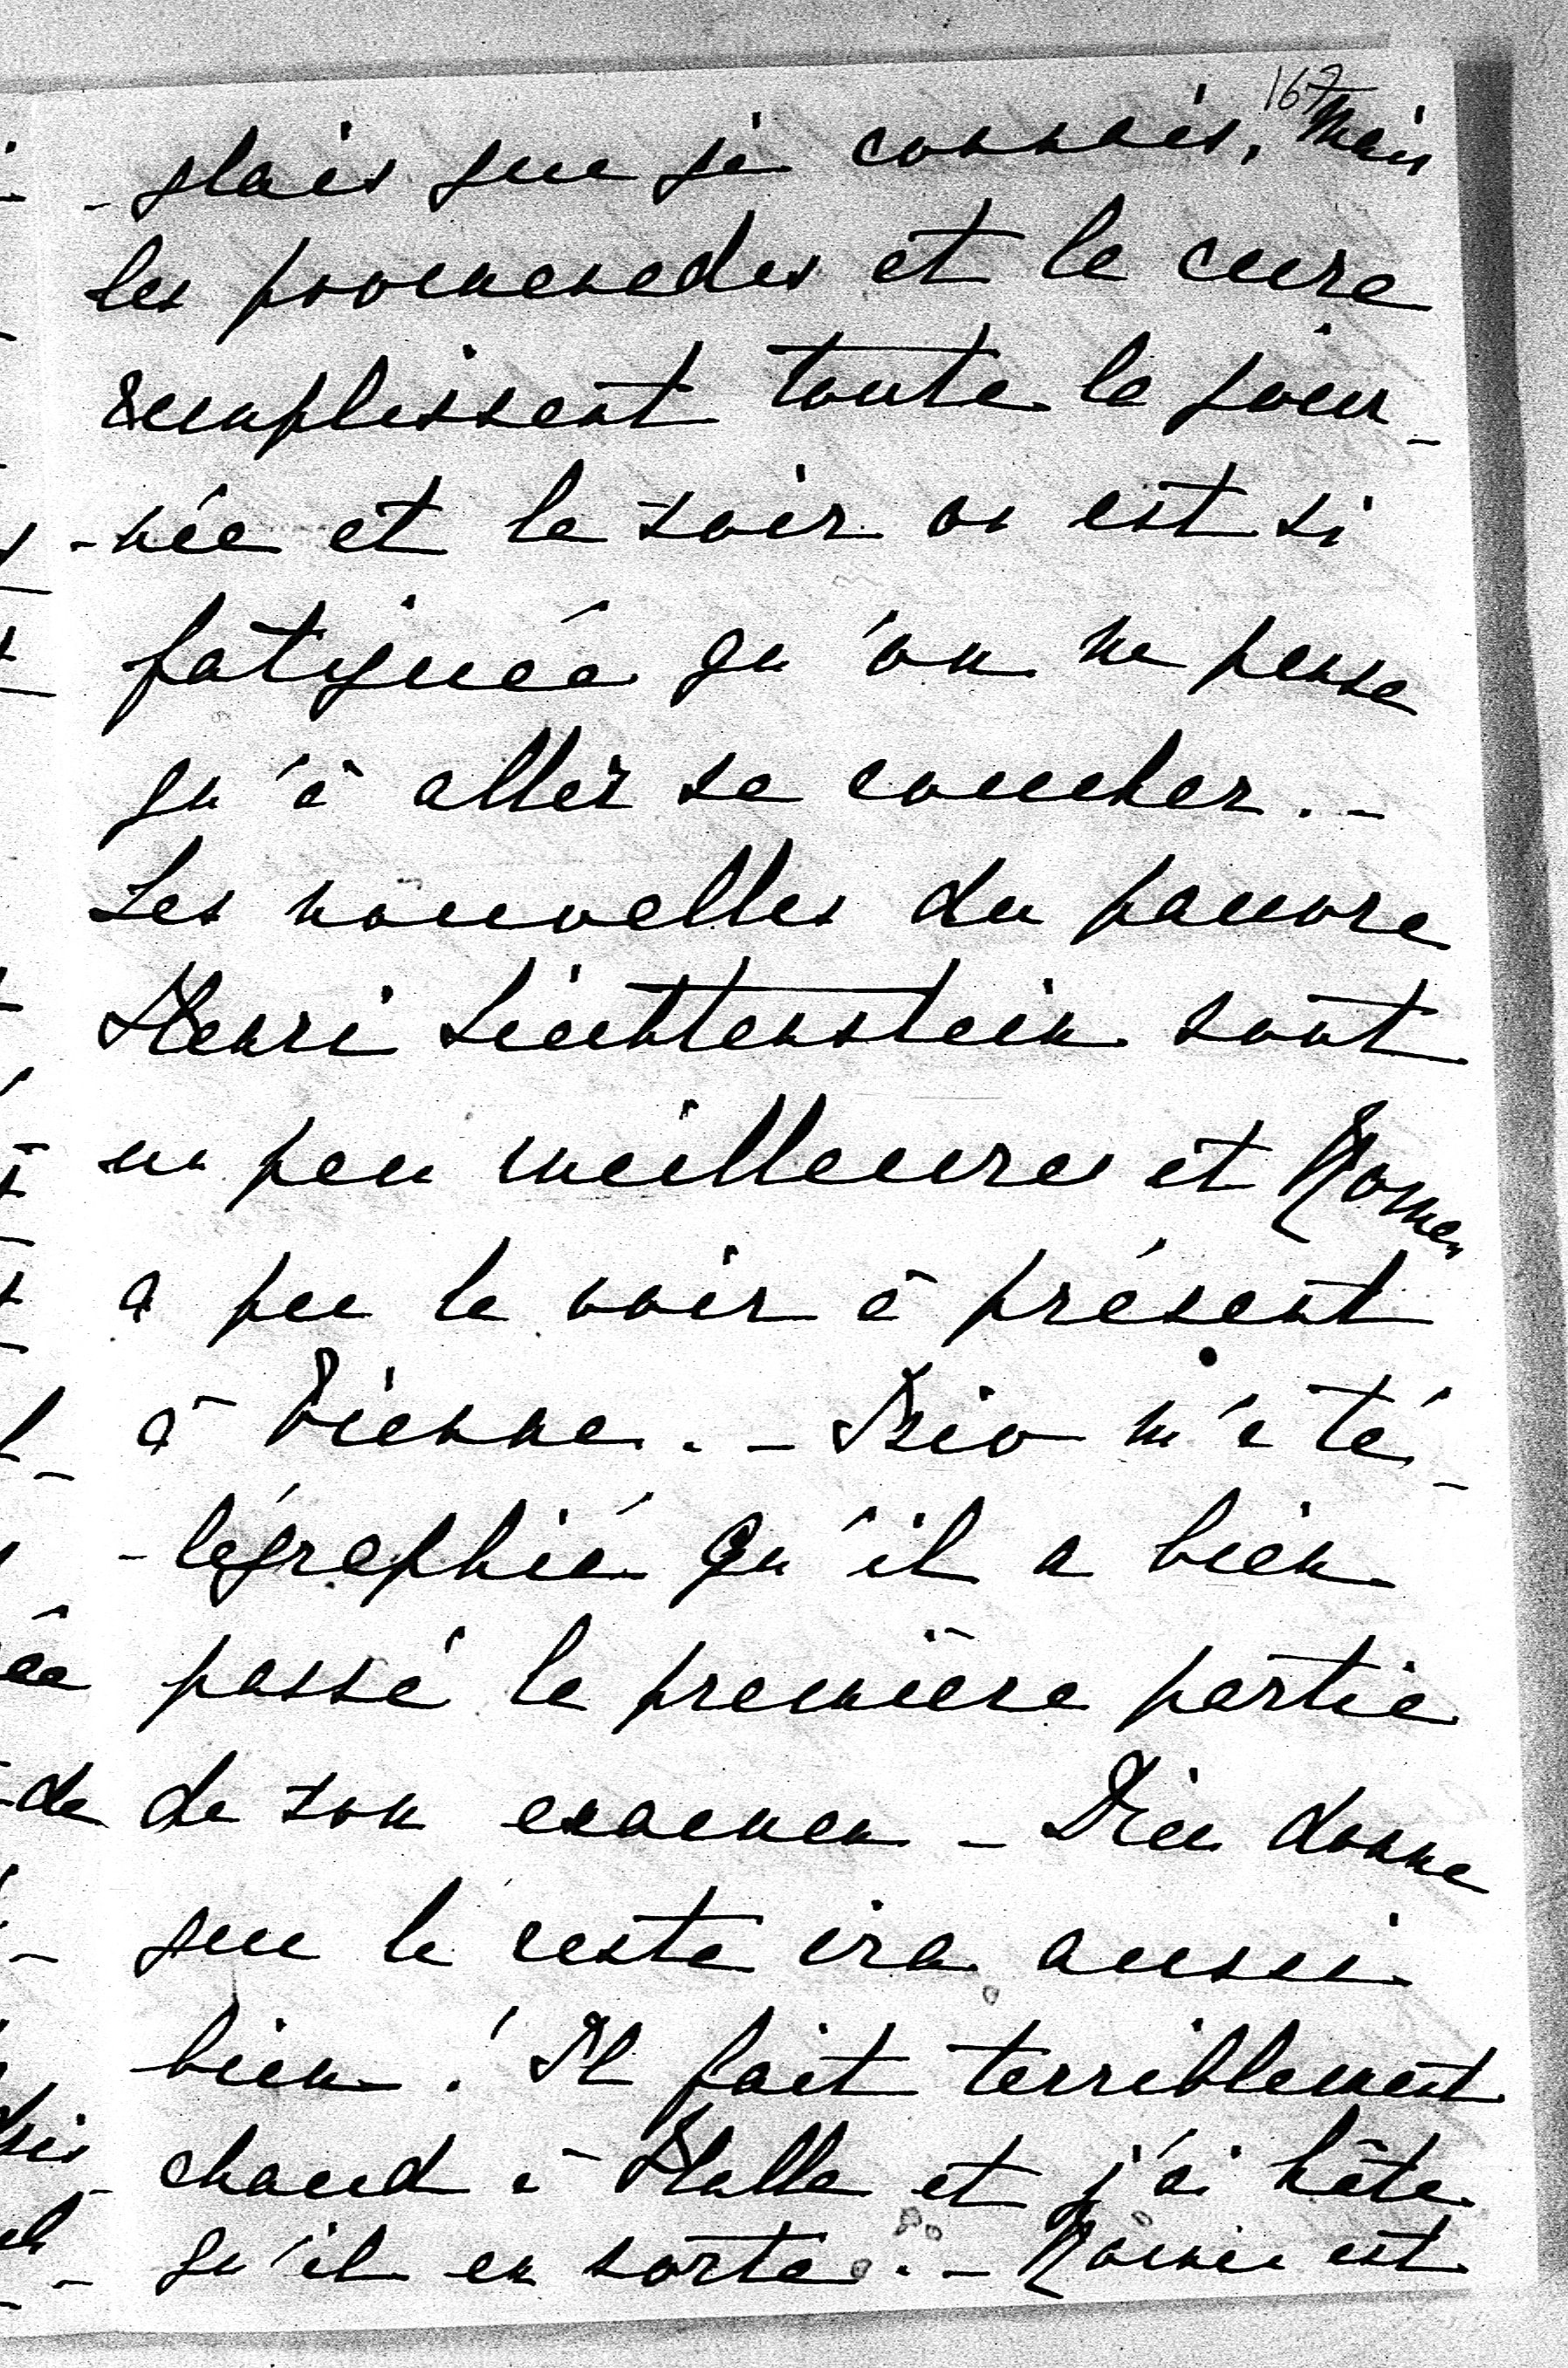 167
-glais que je connais, mais
les promenades et la cure
remplissent toute la jour-
-née et le soir on est si
fatiguée qu'on ne pense
qu'à aller se coucher. -
Les nouvelles du pauvre
Henri Liechtenstein sont
un peu meilleures et Roman
a pu le voir à présent
à Vienne. - m'a té-
-légraphié qu'il a bien
passé la première partie
de son examen - Dieu donne
que le reste ira aussi
bien! Il fait terriblement
chaud à Halle et j'ai hâte
qu'il en sorte. - est